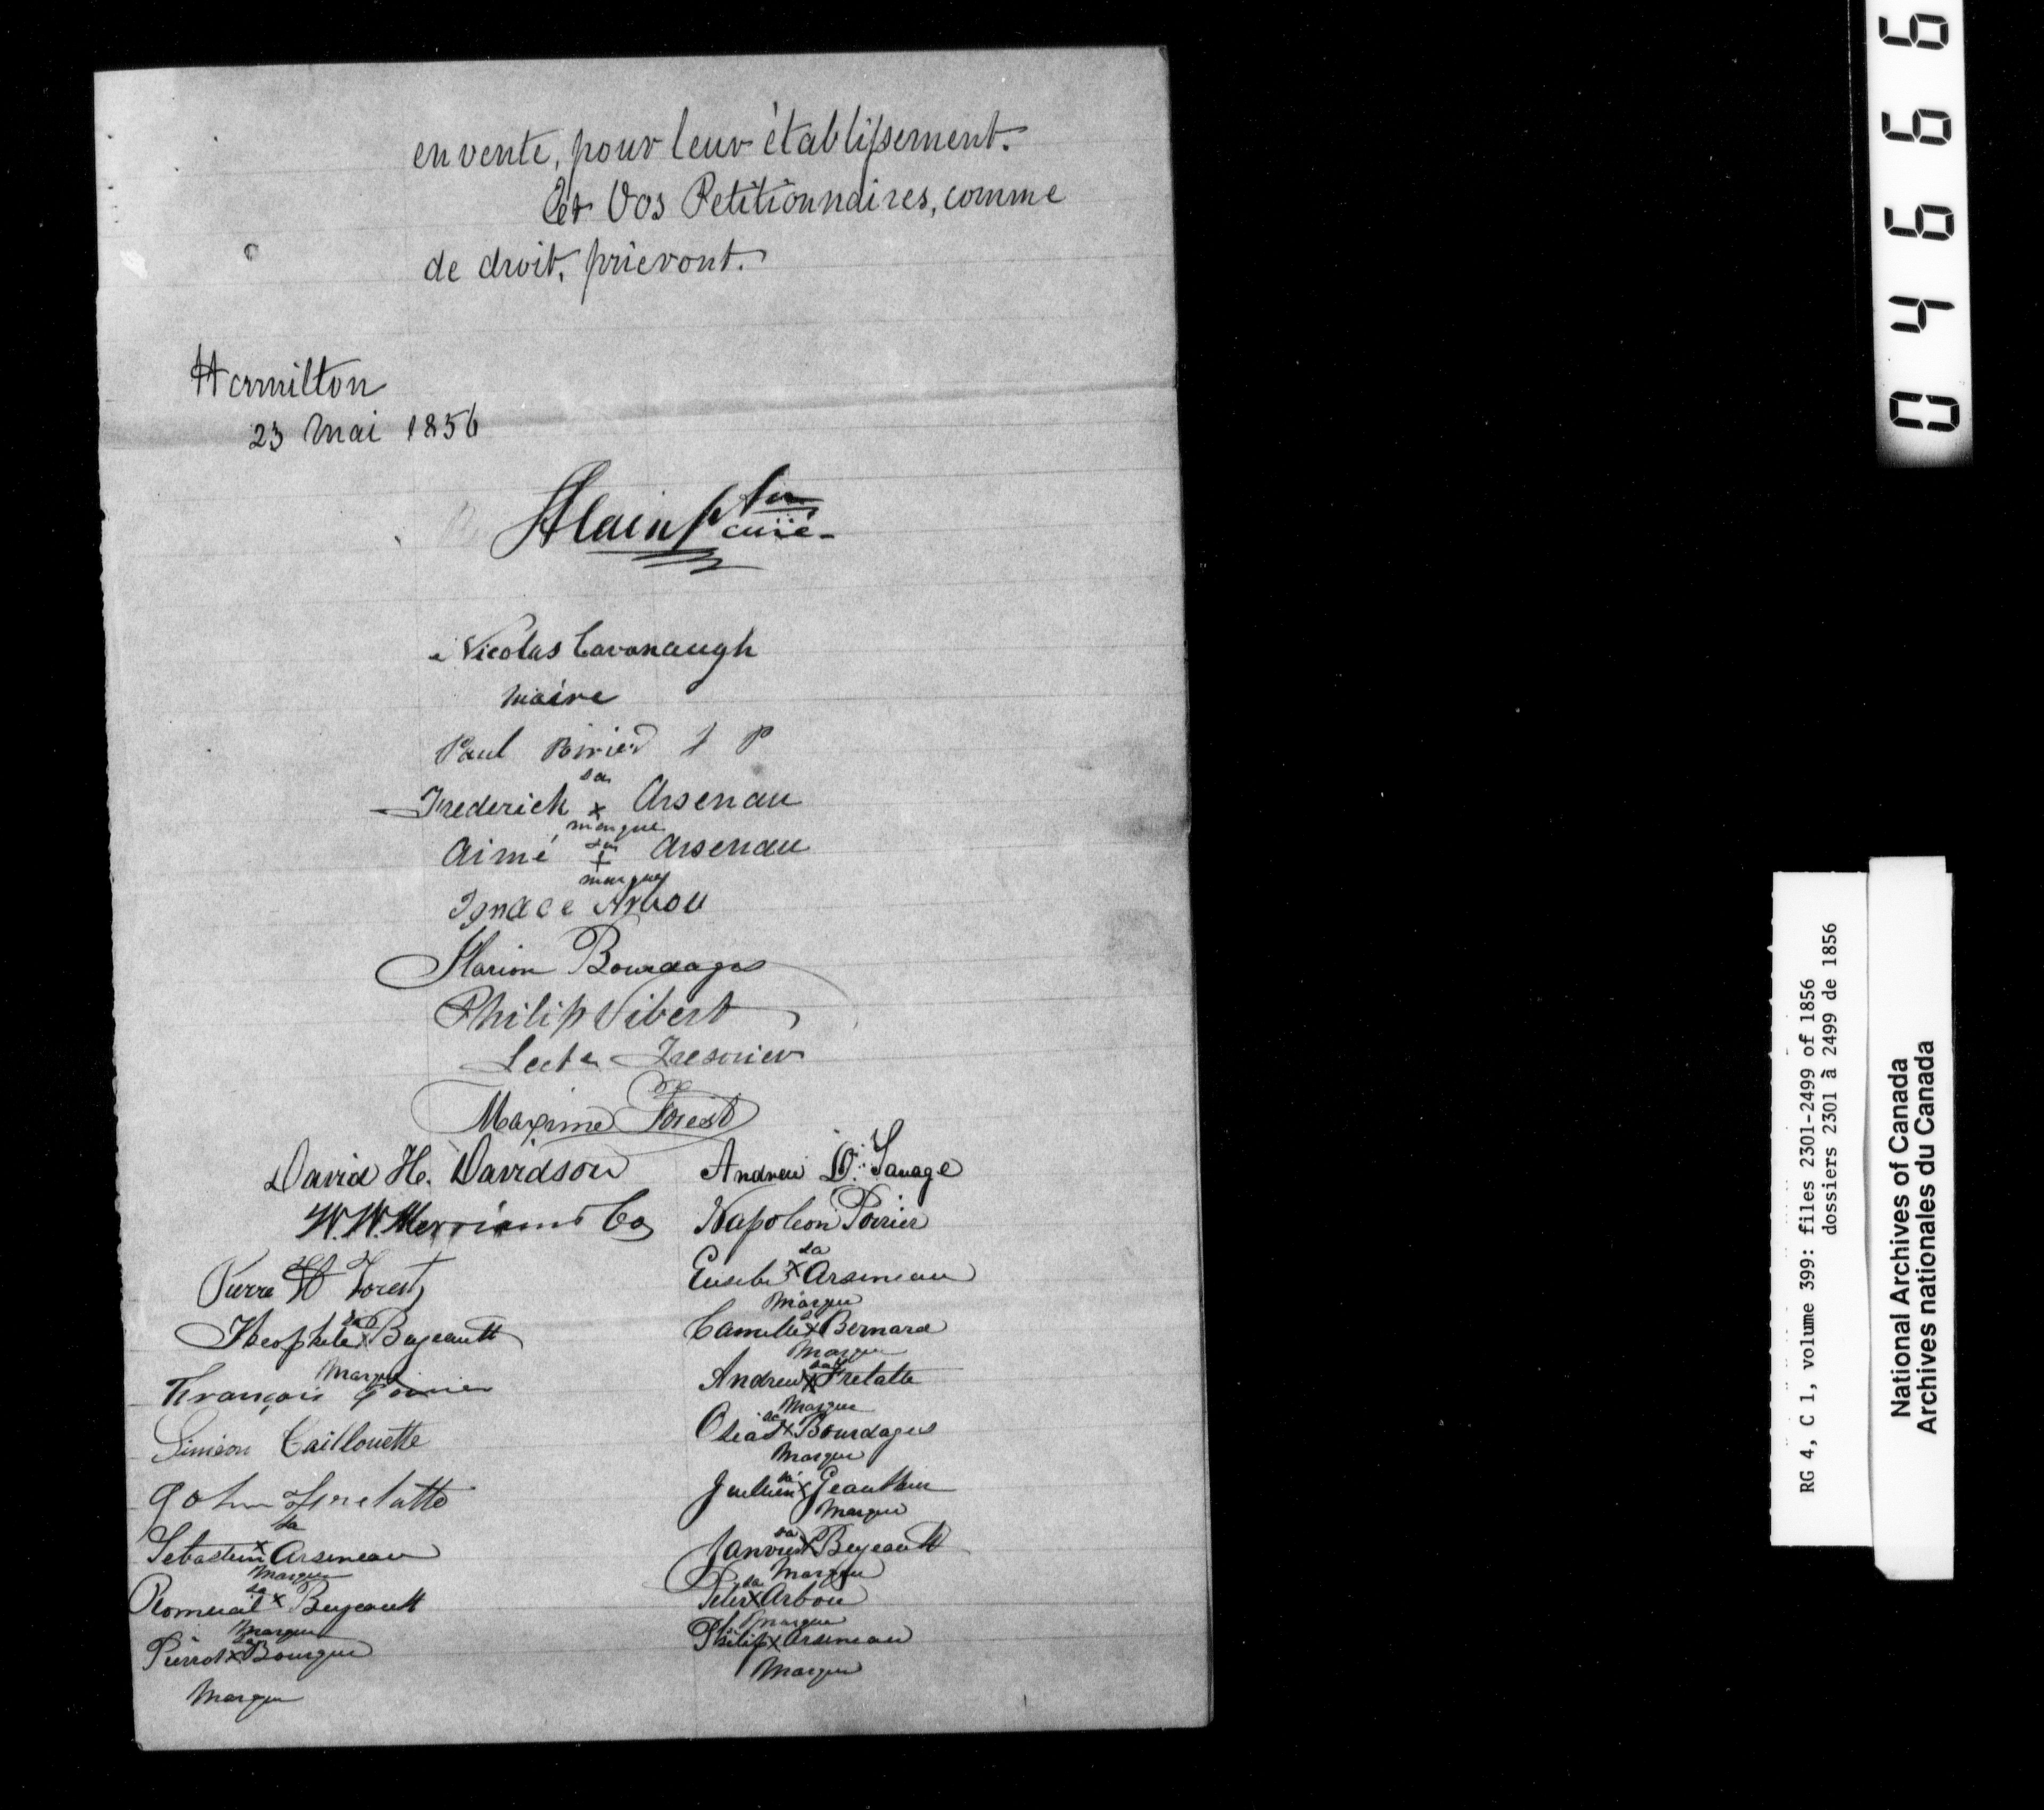 en vente, pour leur établissement.
Et Vos Petitionnaires, comme
de droit, prieront.
Hamilton
23 Mai 1856
Alain Ptre
curé
Nicolas Cavanaugh
Maire
Paul Poirier J P
sa
Frederick x Arsenau
marque
sa
Aimé + Arsenau
marque
Ignace Arbou
Hlarion Bourdages
Philip Vibert
Secte Tresorier
Maxime Forest
David H. Davidson
W.W. Merriams Co
Pierre H Forest
sa
Theophile x Bujeault
Marque
François Poirier
Simeon Caillouette
John Fretatte
sa
Sebastien x Arseneau
Marque
sa
Romuald x Bujeault
Marque
sa
Pierrot x Bourque
Marque
Andrew D. Savage
Napoleon Poirier
sa
Eusebe x Arseneau
Marque
sa
Camille x Bernard
Marque
sa
Andrew x Fretatte
Marque
sa
x Bourdages
Marque
sa
x
Marque
sa
Janvier x Bujeault
Marque
sa
Peter x Arbou
Marque
Philip x Arseneau
Marque
04666
RG 4, C 1, volume 399: files 2301-2499 of 1856
dossiers 2301 à 2499 de 1856
National Archives of Canada
Archives nationales du Canada